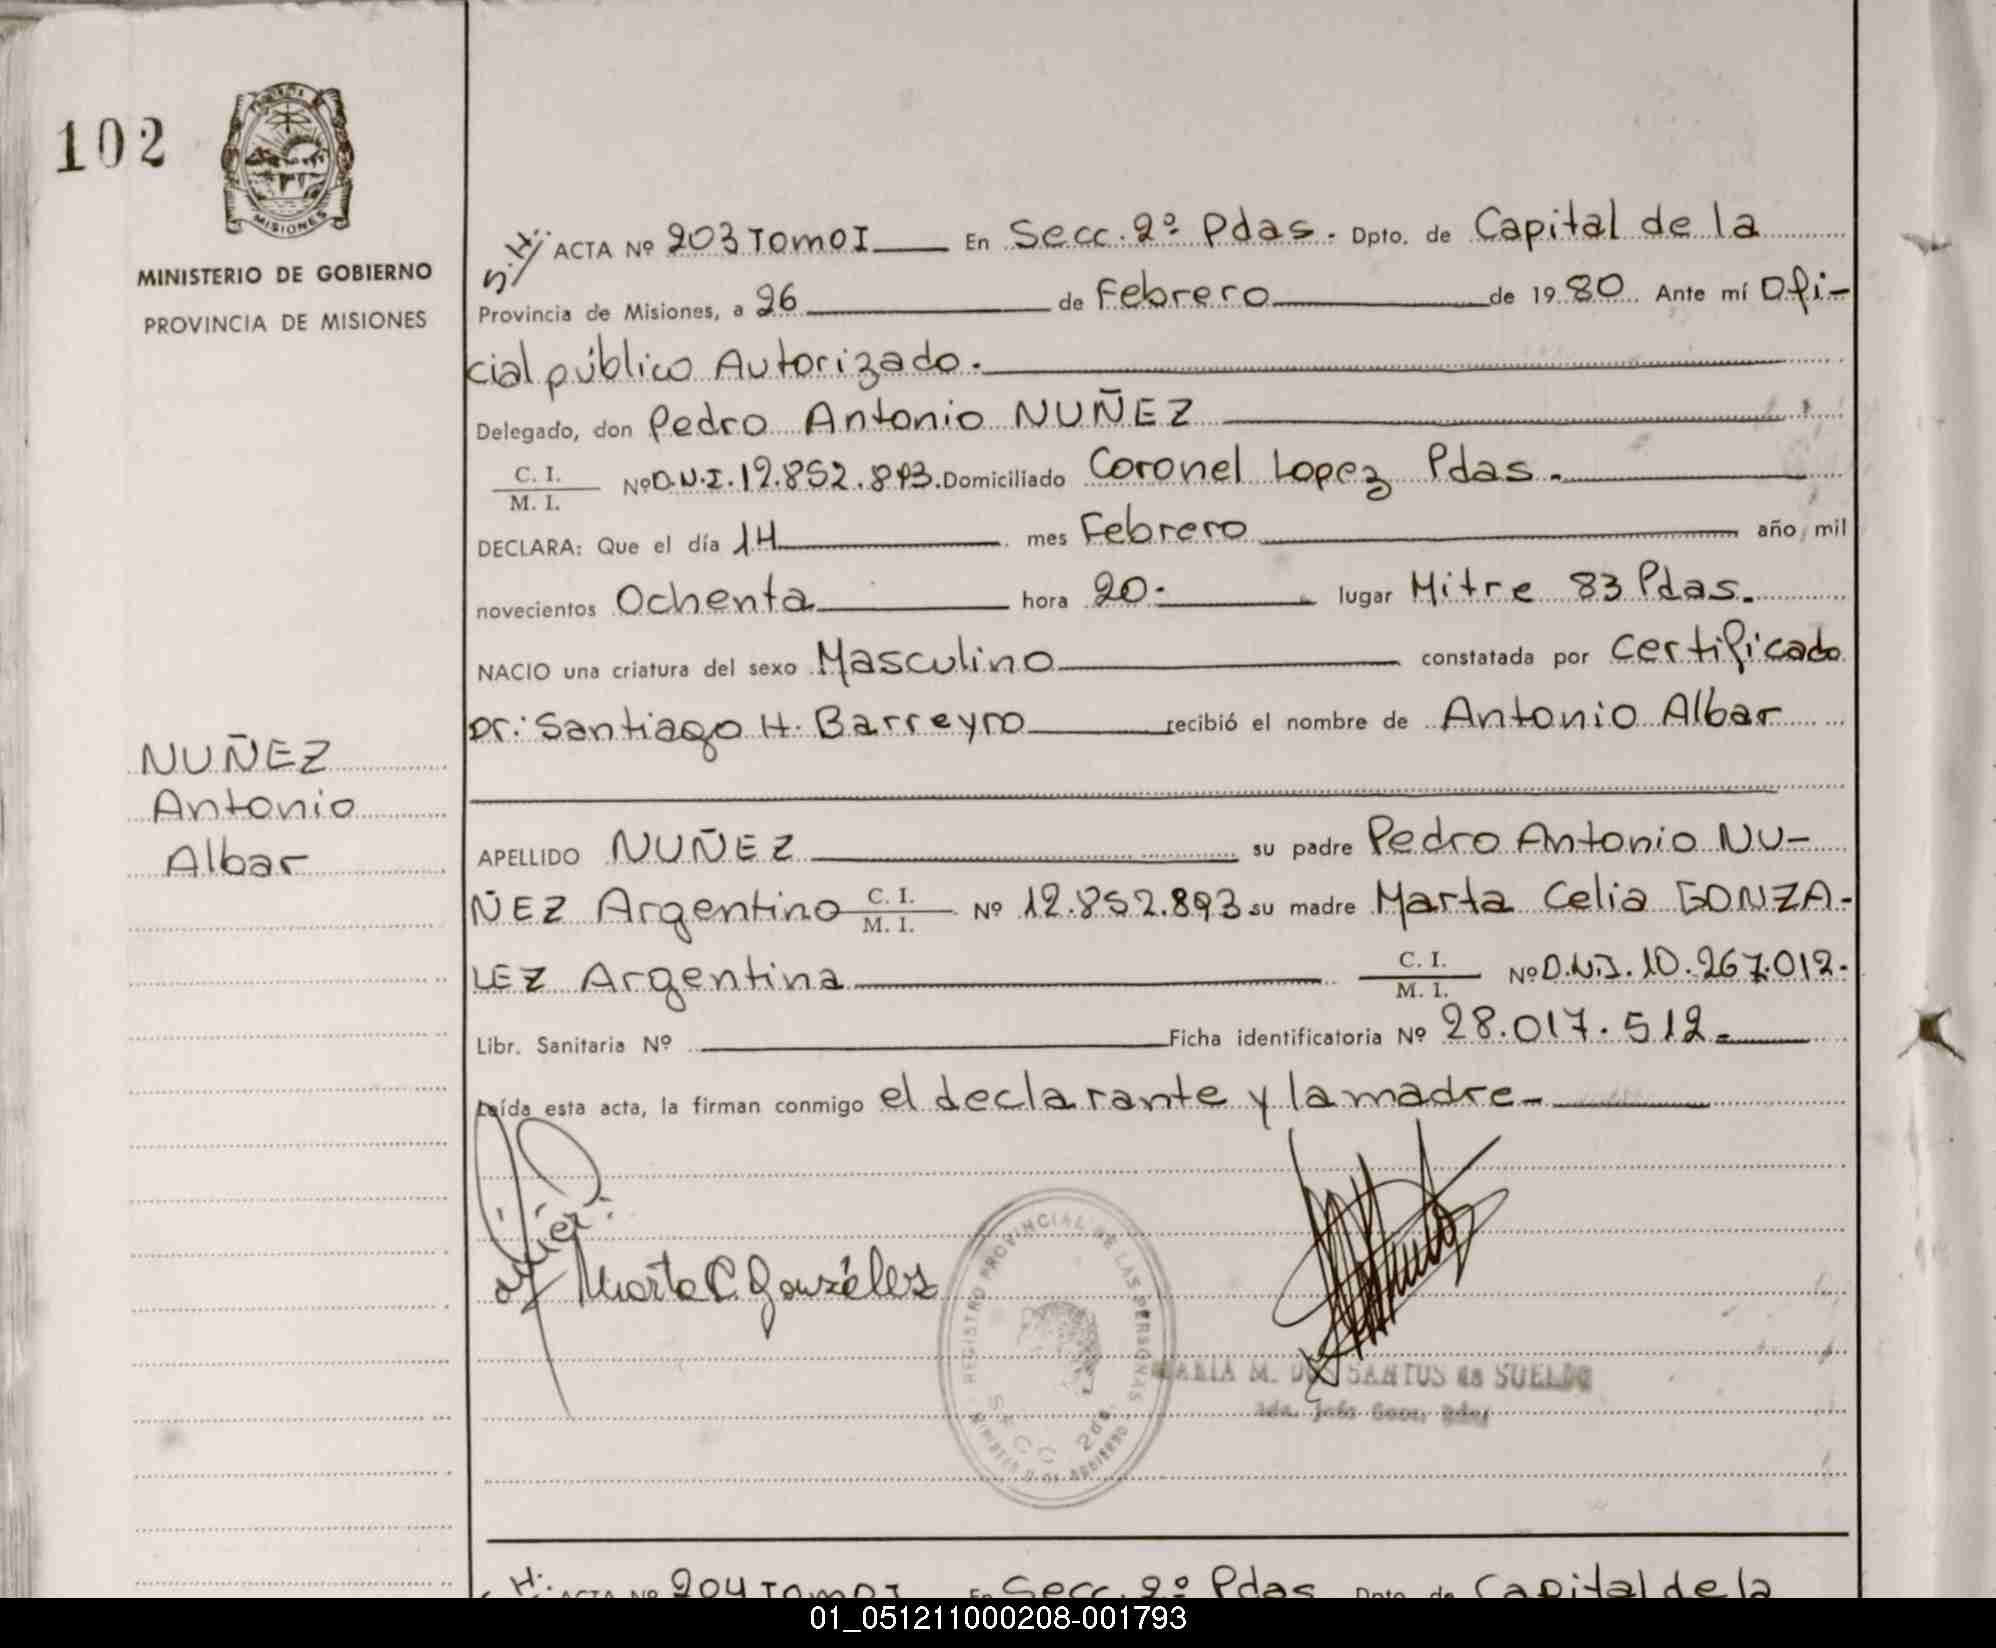 102
MISIONES
MINISTERIO DE GOBIERNO
PROVINCIA DE MISIONES
S.H. ACTA Nº 203 Tomo I En Secc. 2º Pdas. Dpto. de Capital de la
Provincia de Misiones, a 26 de Febrero de 1980 Ante mí Ofi-
cial público Autorizado.
Delegado, don Pedro Antonio NUÑEZ
C. I. / M. I. Nº D.N.I. 12.852.893. Domiciliado Coronel Lopez Pdas.
DECLARA: Que el día 14 mes Febrero año mil
novecientos Ochenta hora 20. lugar Mitre 83 Pdas.
NACIO una criatura del sexo Masculino constatada por Certificado
Dr: Santiago H. Barreyro recibió el nombre de Antonio Albar
NUÑEZ
Antonio
Albar
APELLIDO NUÑEZ su padre Pedro Antonio NU-
ÑEZ Argentino C. I. / M. I. Nº 12.852.893 su madre Marta Celia GONZA-
LEZ Argentina C. I. / M. I. Nº D.N.I. 10.267.012.
Libr. Sanitaria Nº Ficha identificatoria Nº 28.017.512.
Leída esta acta, la firman conmigo el declarante y la madre-
Marta C González
REGISTRO PROVINCIAL DE LAS PERSONAS
SECC 2da.
MARIA M. DOS SANTOS de SUELDO
H. ACTA Nº 204 Tomo I En Secc. 2º Pdas Dpto. de Capital de la
01_051211000208-001793